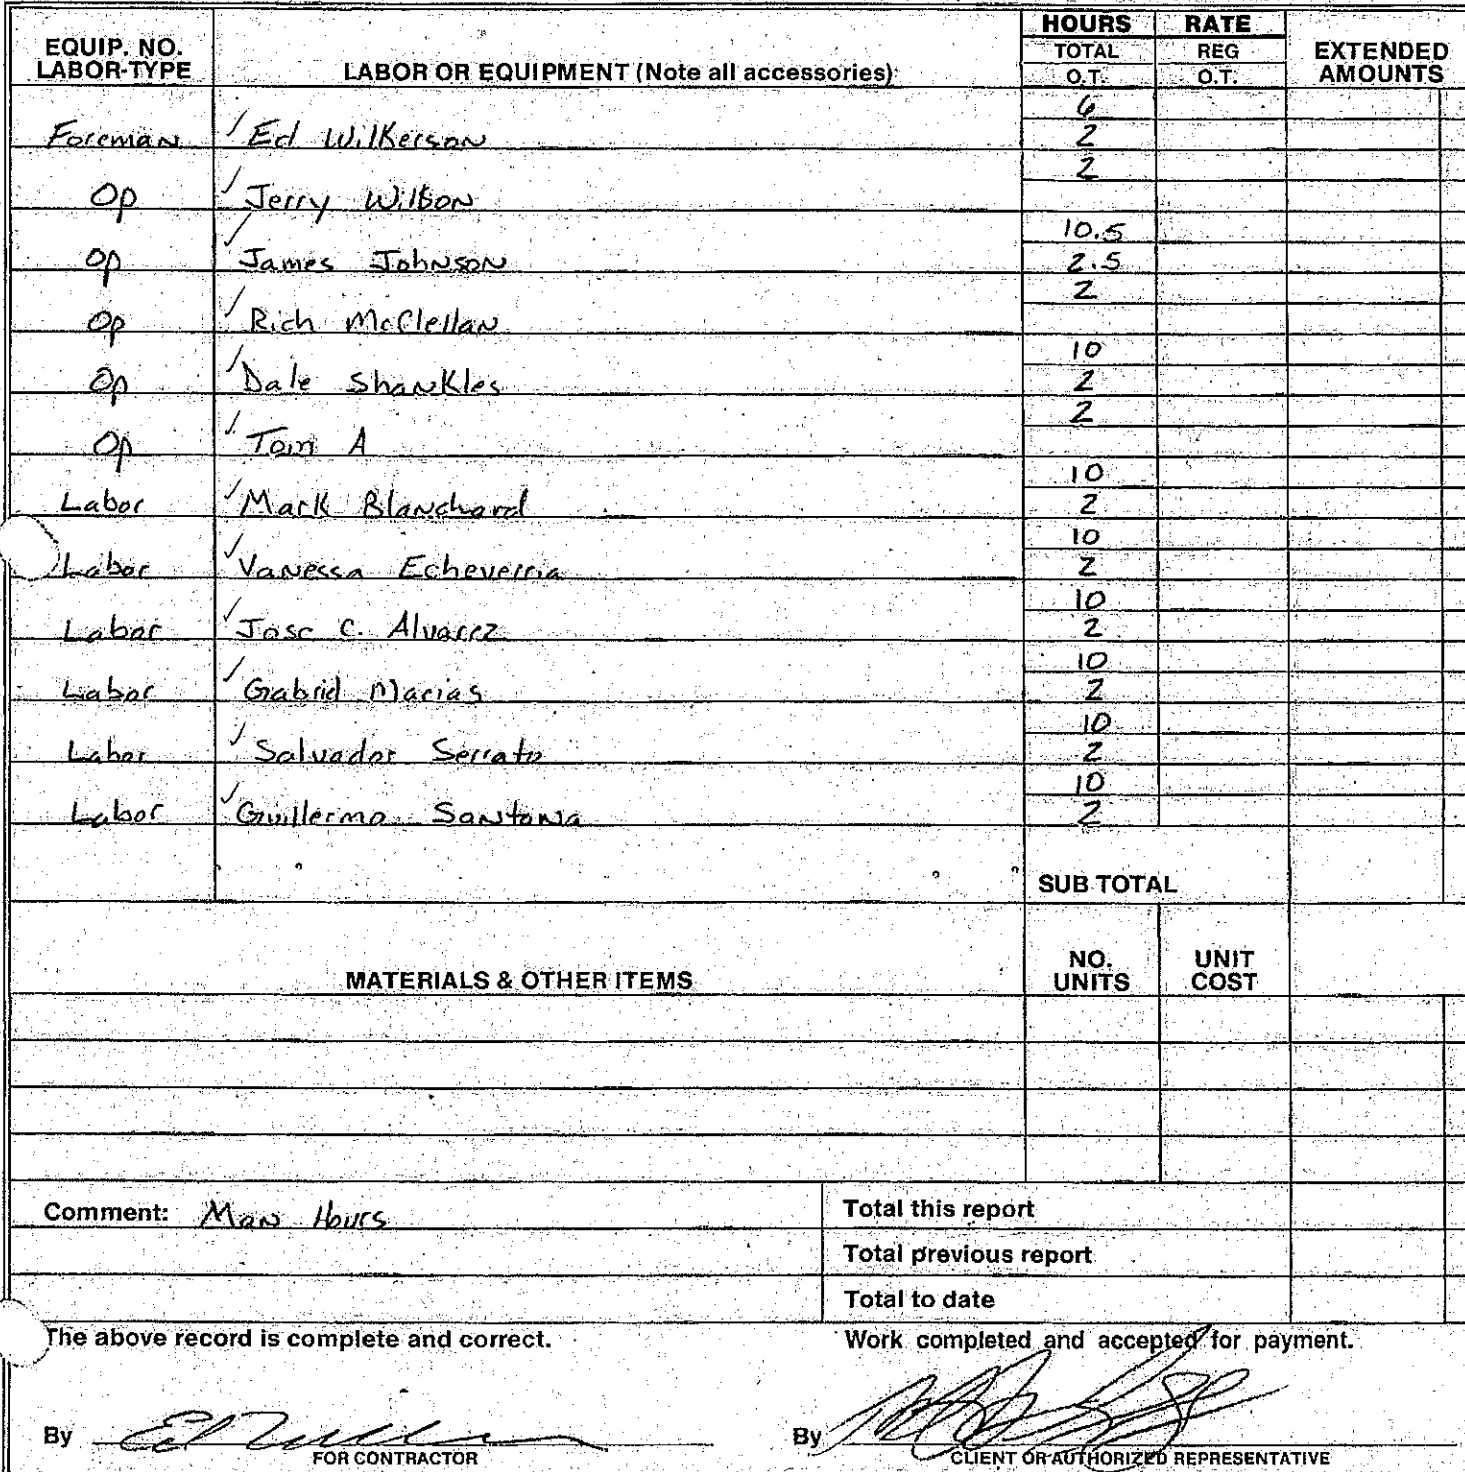 EQUIP. NO. LABOR-TYPE LABOR OR EQUIPMENT (Note all accessories) HOURS TOTAL O.T. RATE REG O.T. EXTENDED AMOUNTS
6
Foreman ✓ Ed Wilkerson 2
2
Op ✓ Jerry Wilson
10.5
Op ✓ James Johnson 2.5
2
Op ✓ Rich McClellan
10
Op ✓ Dale Shankles 2
2
Op ✓ Tom A
10
Labor ✓ Mark Blanchard 2
10
Labor ✓ Vanessa Echeverria 2
10
Labor ✓ Jose C. Alvarez 2
10
Labor ✓ Gabriel Macias 2
10
Labor ✓ Salvador Serrato 2
10
Labor ✓ Guillermo Santana 2
SUB TOTAL
MATERIALS & OTHER ITEMS NO. UNITS UNIT COST
Comment: Man Hours Total this report
Total previous report
Total to date
The above record is complete and correct. Work completed and accepted for payment.
By By
FOR CONTRACTOR CLIENT OR AUTHORIZED REPRESENTATIVE